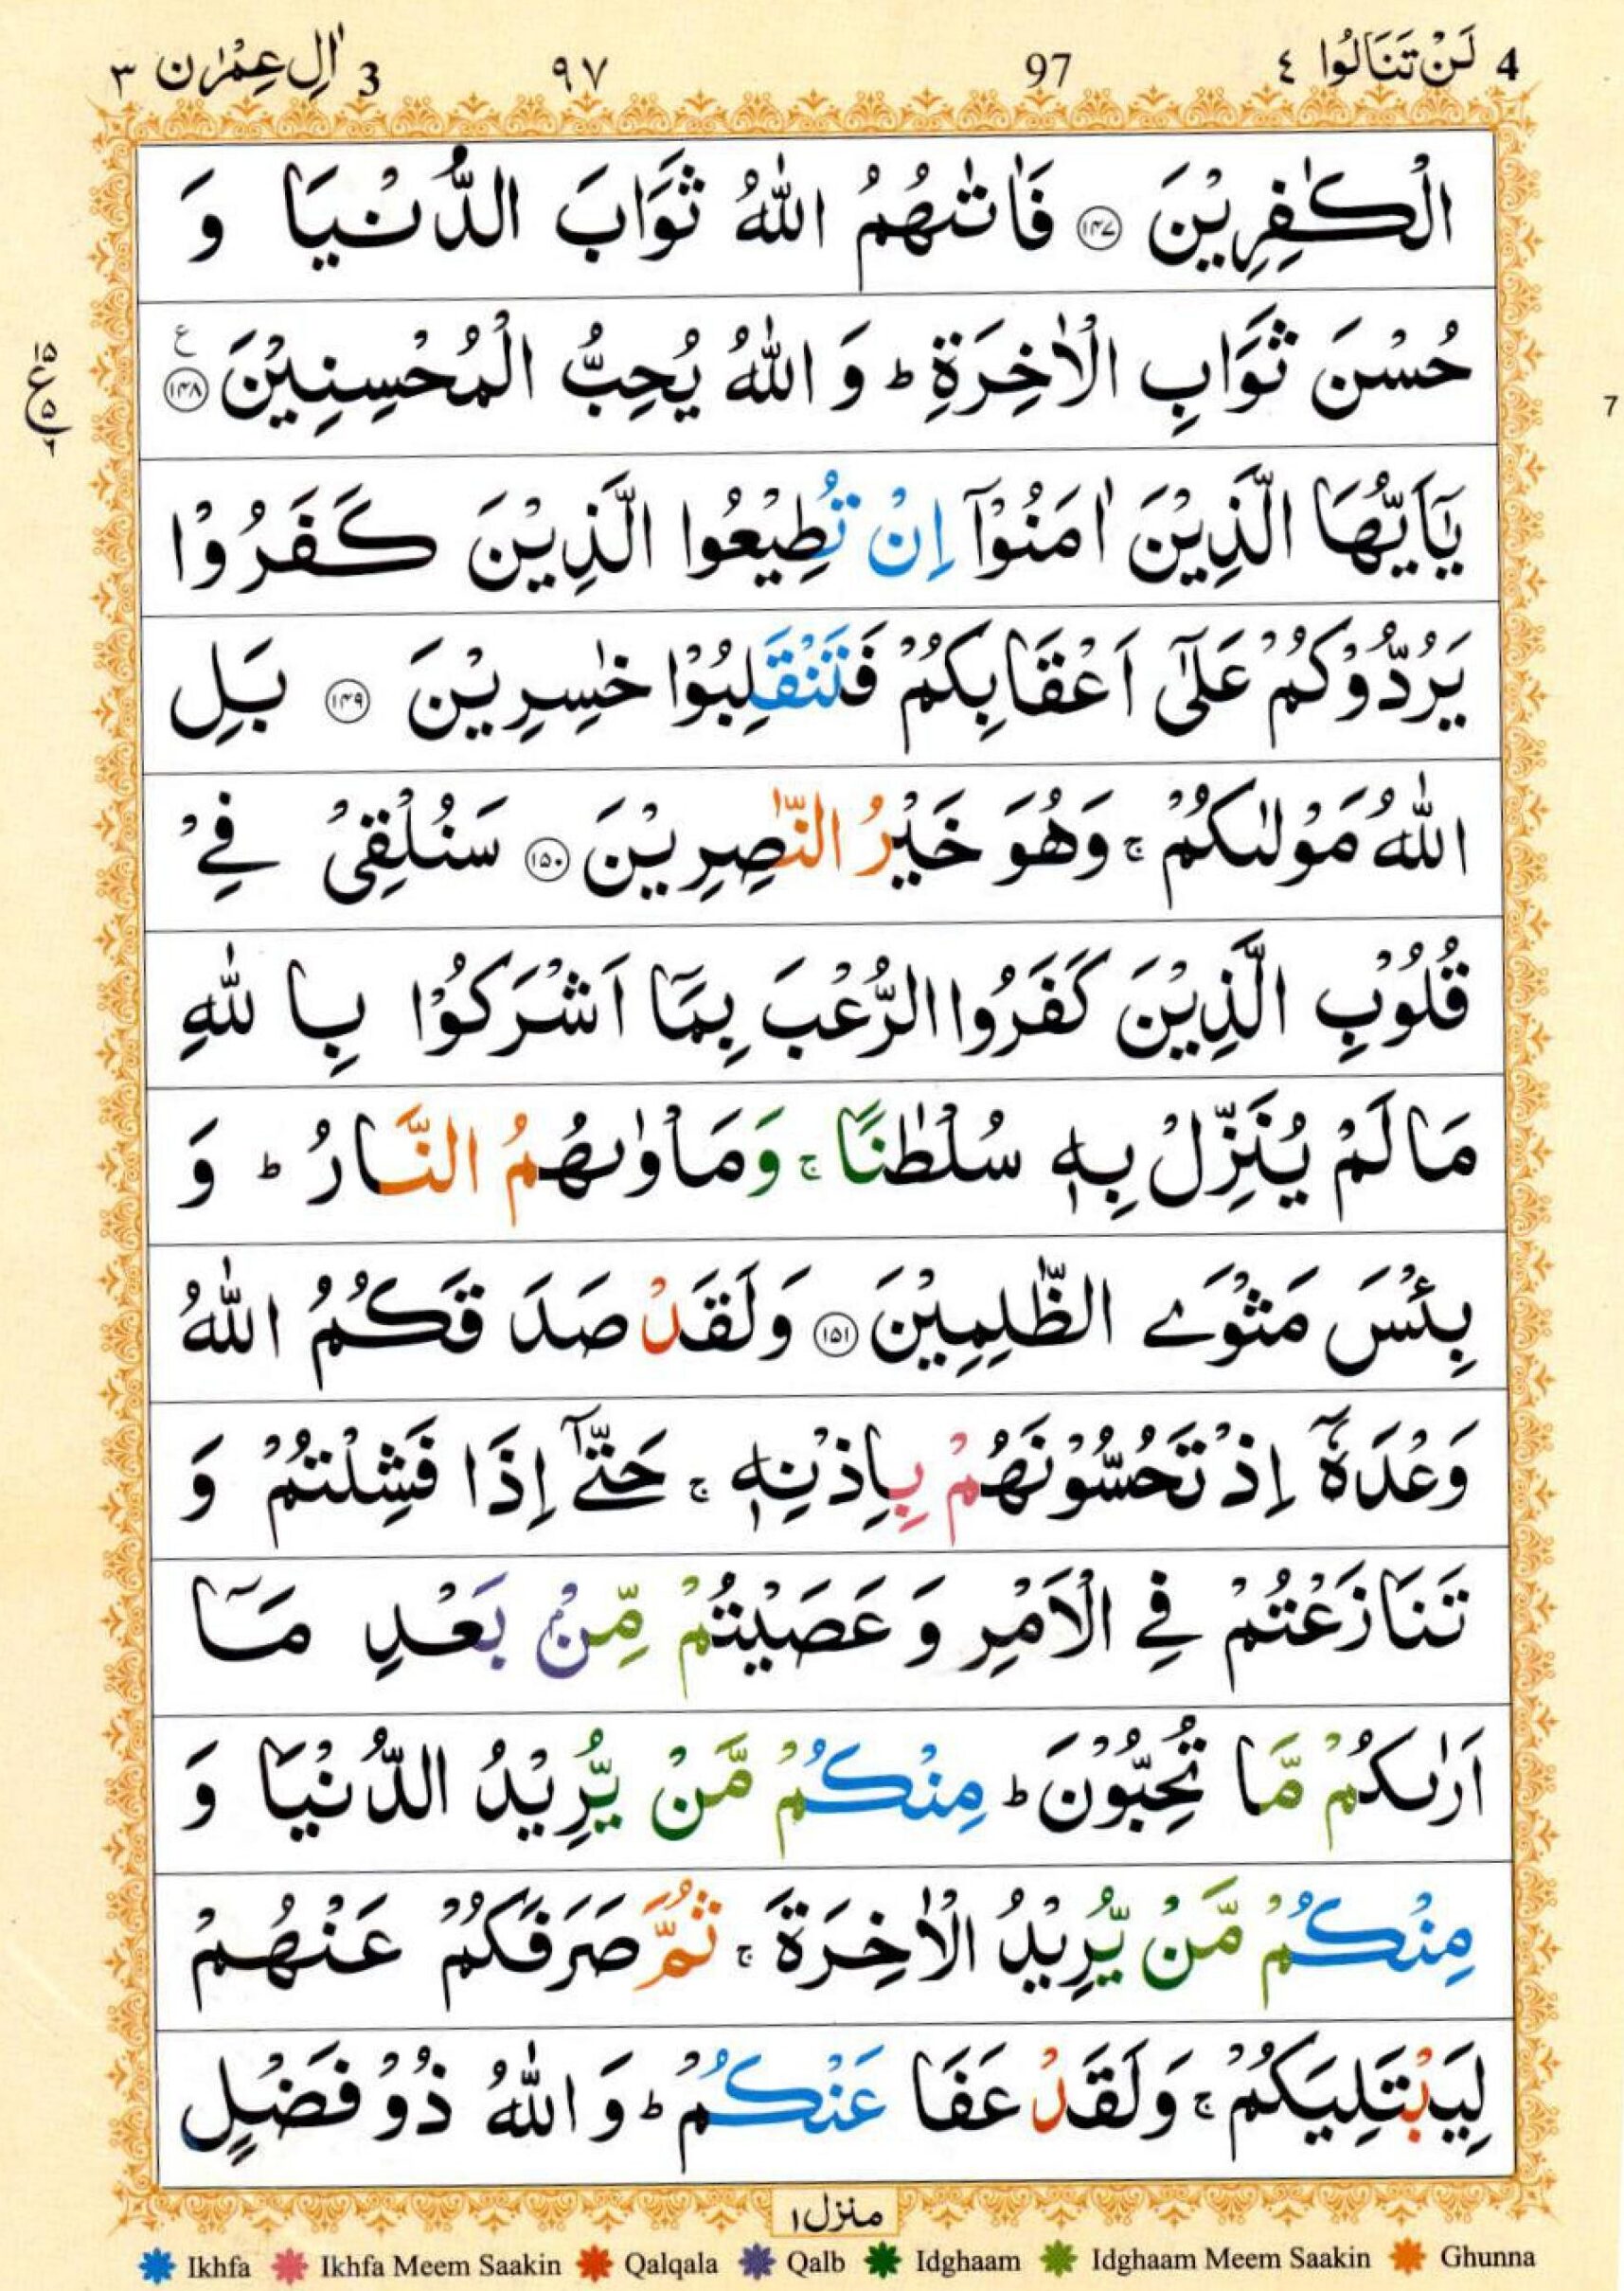 4 لَنْ تَنَالُوا ٤ 97 ٩٧ 3 اٰلِ عِمْرٰن ٣
الْكٰفِرِيْنَ ۝۱۴۷ فَاٰتٰىهُمُ اللّٰهُ ثَوَابَ الدُّنْيَا وَ
حُسْنَ ثَوَابِ الْاٰخِرَةِ ؕ وَ اللّٰهُ يُحِبُّ الْمُحْسِنِيْنَ ۝۱۴۸ ع
۱۵ ع ۵ ٦
7
يٰۤاَيُّهَا الَّذِيْنَ اٰمَنُوْۤا اِنْ تُطِيْعُوا الَّذِيْنَ كَفَرُوْا
يَرُدُّوْكُمْ عَلٰۤى اَعْقَابِكُمْ فَتَنْقَلِبُوْا خٰسِرِيْنَ ۝۱۴۹ بَلِ
اللّٰهُ مَوْلٰىكُمْ ۚ وَهُوَ خَيْرُ النّٰصِرِيْنَ ۝۱۵۰ سَنُلْقِىْ فِيْ
قُلُوْبِ الَّذِيْنَ كَفَرُوا الرُّعْبَ بِمَاۤ اَشْرَكُوْا بِا للّٰهِ
مَا لَمْ يُنَزِّلْ بِهٖ سُلْطٰنًا ۚ وَمَاْوٰىهُمُ النَّارُ ؕ وَ
بِئْسَ مَثْوَے الظّٰلِمِيْنَ ۝۱۵۱ وَلَقَدْ صَدَ قَكُمُ اللّٰهُ
وَعْدَهٗۤ اِذْ تَحُسُّوْنَهُمْ بِاِذْنِهٖ ۚ حَتّٰۤے اِذَا فَشِلْتُمْ وَ
تَنَازَعْتُمْ فِي الْاَمْرِ وَ عَصَيْتُمْ مِّنْۢ بَعْدِ مَاۤ
اَرٰىكُمْ مَّا تُحِبُّوْنَ ؕ مِنْكُمْ مَّنْ يُّرِيْدُ الدُّنْيَا وَ
مِنْكُمْ مَّنْ يُّرِيْدُ الْاٰخِرَةَ ۚ ثُمَّ صَرَفَكُمْ عَنْهُمْ
لِيَبْتَلِيَكُمْ ۚ وَلَقَدْ عَفَا عَنْكُمْ ؕ وَ اللّٰهُ ذُوْ فَضْلٍ
منزل۱
Ikhfa Ikhfa Meem Saakin Qalqala Qalb Idghaam Idghaam Meem Saakin Ghunna